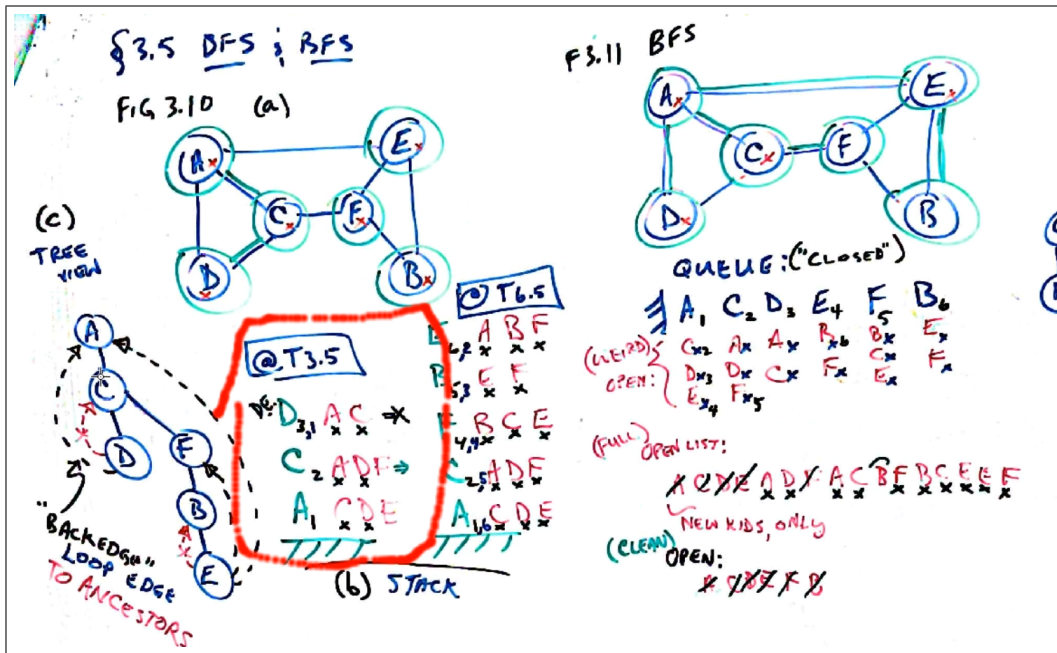 §3.5 DFS & BFS
FIG 3.10 (a)
A
E
C
F
D
B
(c)
TREE
VIEW
A
C
D
F
B
E
"BACKEDGE"
LOOP EDGE
TO ANCESTORS
@ T3.5
D3,1 A C
C2 A D F
A1 C D E
@ T6.5
E6,2 A B F
B5,3 E F
F4,4 B C E
C2,5 A D F
A1,6 C D E
(b) STACK
F3.11 BFS
A
E
C
F
D
B
QUEUE: ("CLOSED")
A1 C2 D3 E4 F5 B6
(WEIRD) Cx2 Ax Ax Bx6 Bx Ex
OPEN: Dx3 Dx Cx Fx Cx Fx
Ex4 Fx5 Ex
(FULL) OPEN LIST:
A C D E A D F A C B F B C E E F
NEW KIDS, ONLY
(CLEAN) OPEN:
A C D E F B